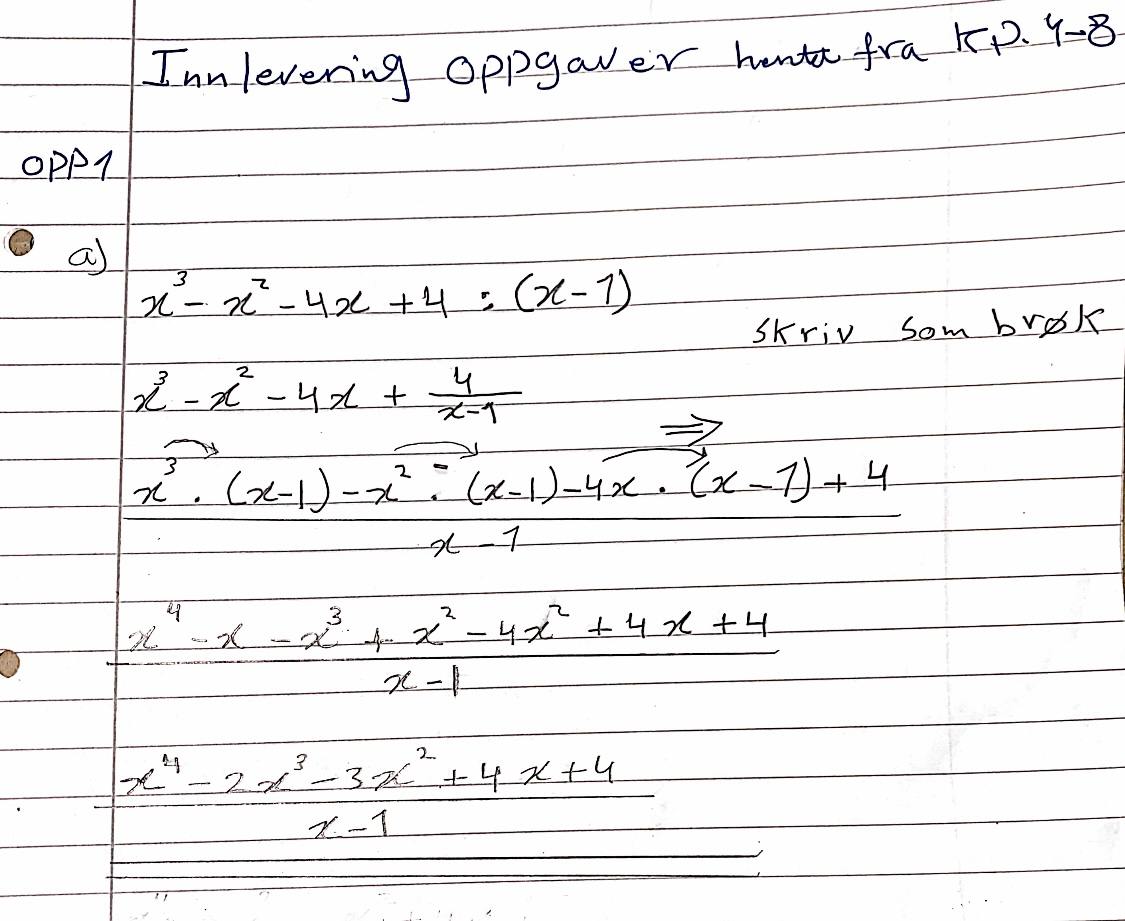 Innlevering oppgaver henta fra kp. 4-8
OPP1
a)
x³ - x² - 4x + 4 : (x - 1)
skriv som brøk
x³ - x² - 4x + 4/(x-1)
⇒
x³ · (x-1) - x² · (x-1) - 4x · (x - 1) + 4
x - 1
x⁴ - x - x³ + x² - 4x² + 4x + 4
x - 1
x⁴ - 2x³ - 3x² + 4x + 4
x - 1